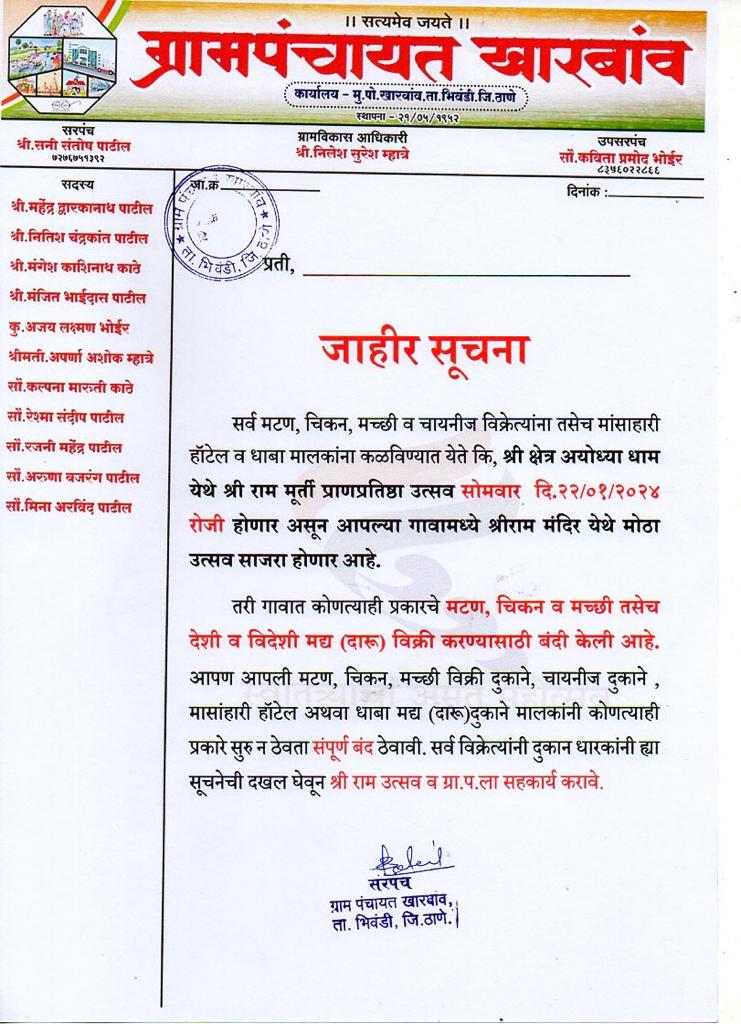 ।। सत्यमेव जयते ।।
ग्रामपंचायत खारबांव
कार्यालय - मु.पो.खारबांव,ता.भिवंडी.जि.ठाणे
स्थापना - २१/०५/१९५२
सरपंच
श्री.सनी संतोष पाटील
७२७६७५१३९२
ग्रामविकास आधिकारी
श्री.निलेश सुरेश म्हात्रे
उपसरपंच
सौ.कविता प्रमोद भोईर
८३७६०२२८६६
सदस्य
श्री.महेंद्र द्वारकानाथ पाटील
श्री.नितिश चंद्रकांत पाटील
श्री.मंगेश काशिनाथ काठे
श्री.मंजित भाईदास पाटील
कु.अजय लक्ष्मण भोईर
श्रीमती.अपर्णा अशोक म्हात्रे
सौ.कल्पना मारुती काठे
सौ.रेश्मा संदीप पाटील
सौ.रजनी महेंद्र पाटील
सौ.अरुणा बजरंग पाटील
सौ.मिना अरविंद पाटील
जा.क्र.
दिनांक :
ग्राम पंचायत खारबांव
ता. भिवंडी, जि. ठाणे
प्रती,
जाहीर सूचना
सर्व मटण, चिकन, मच्छी व चायनीज विक्रेत्यांना तसेच मांसाहारी
हॉटेल व धाबा मालकांना कळविण्यात येते कि, श्री क्षेत्र अयोध्या धाम
येथे श्री राम मूर्ती प्राणप्रतिष्ठा उत्सव सोमवार दि.२२/०१/२०२४
रोजी होणार असून आपल्या गावामध्ये श्रीराम मंदिर येथे मोठा
उत्सव साजरा होणार आहे.
तरी गावात कोणत्याही प्रकारचे मटण, चिकन व मच्छी तसेच
देशी व विदेशी मद्य (दारू) विक्री करण्यासाठी बंदी केली आहे.
आपण आपली मटण, चिकन, मच्छी विक्री दुकाने, चायनीज दुकाने ,
मासांहारी हॉटेल अथवा धाबा मद्य (दारू)दुकाने मालकांनी कोणत्याही
प्रकारे सुरु न ठेवता संपूर्ण बंद ठेवावी. सर्व विक्रेत्यांनी दुकान धारकांनी ह्या
सूचनेची दखल घेवून श्री राम उत्सव व ग्रा.प.ला सहकार्य करावे.
सरपंच
ग्राम पंचायत खारबांव,
ता. भिवंडी, जि.ठाणे.